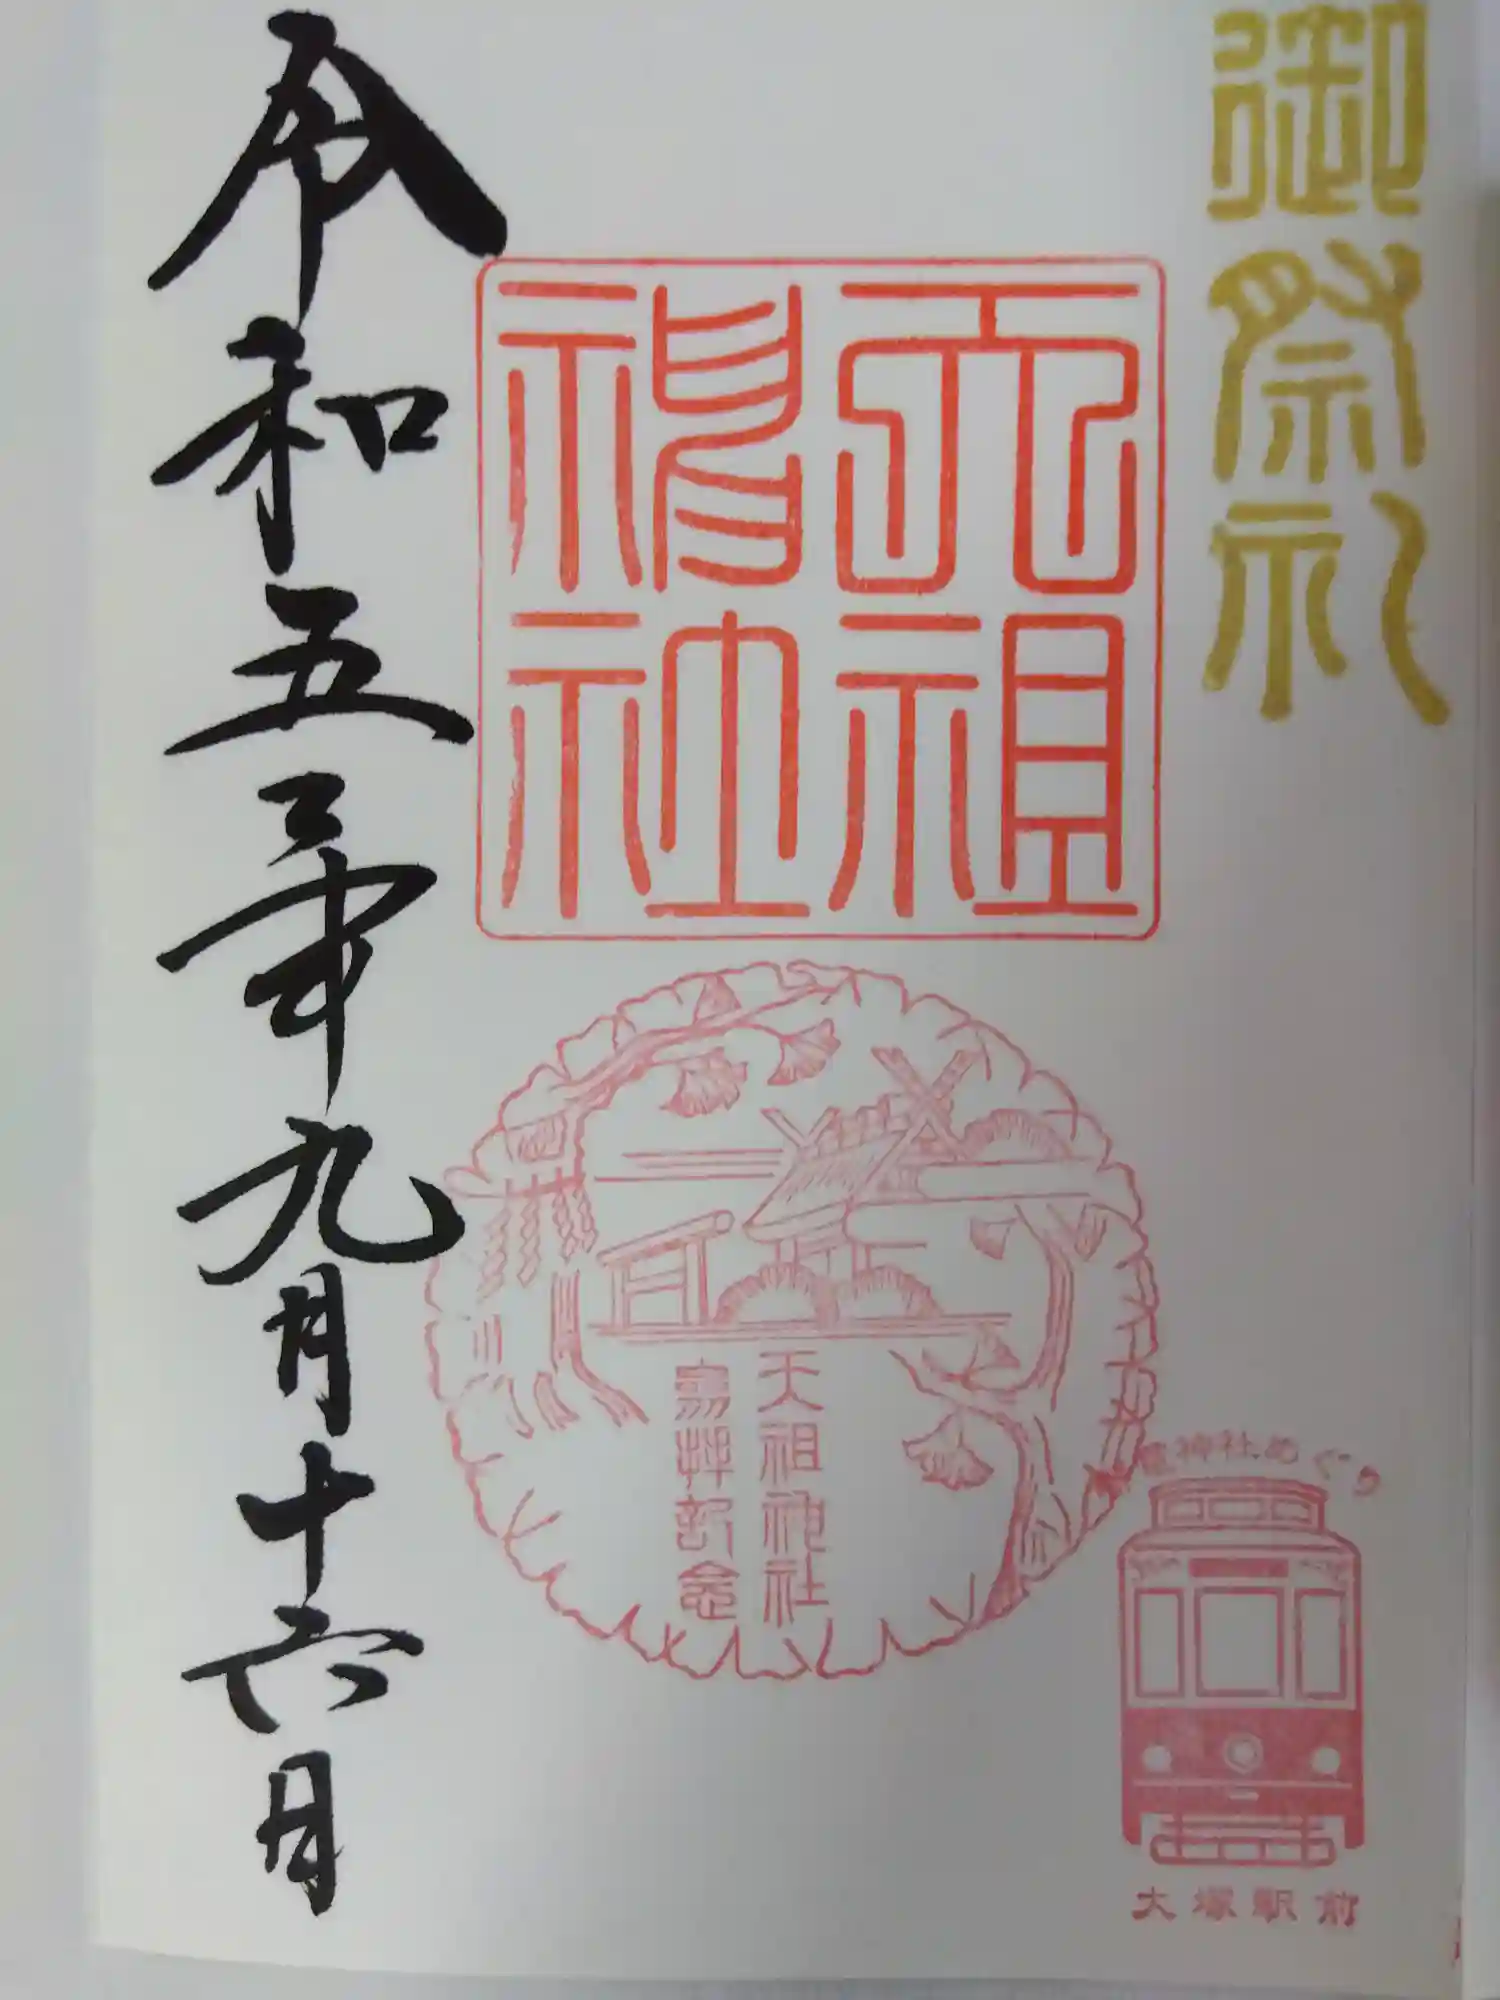 御祭礼
天祖
神社
天祖神社
参拝記念
神社めぐり
大塚駅前
令和五年九月十六日